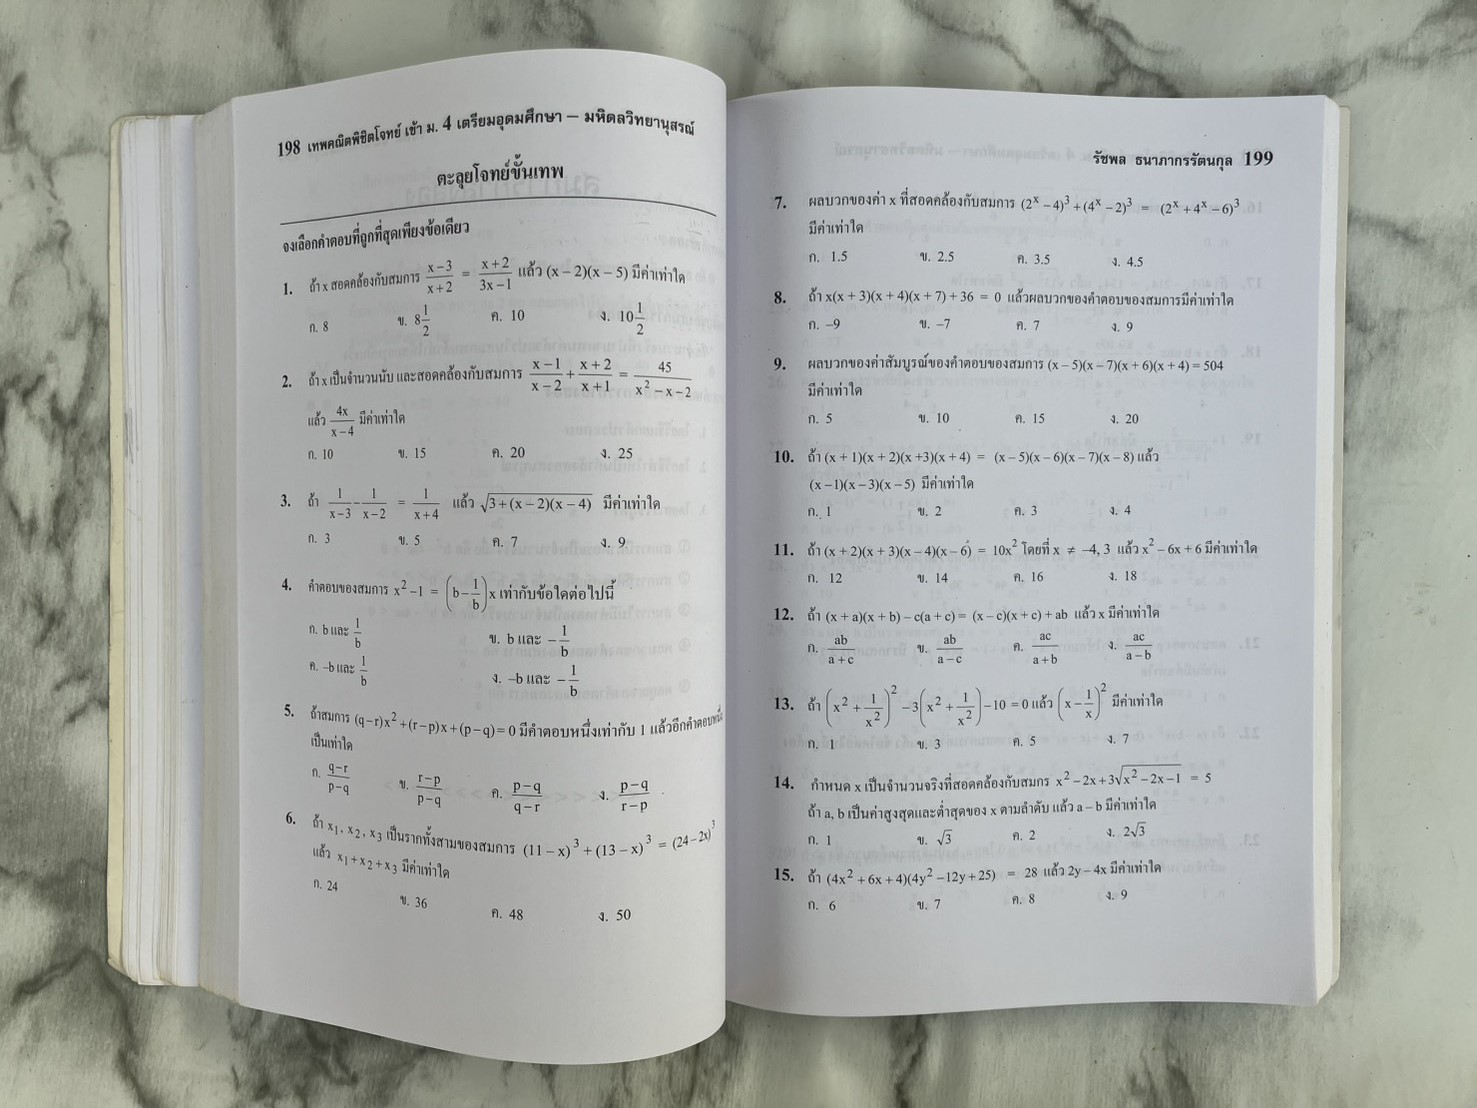 198 เทพคณิตพิชิตโจทย์ เข้า ม. 4 เตรียมอุดมศึกษา – มหิดลวิทยานุสรณ์
ตะลุยโจทย์ขั้นเทพ
จงเลือกคำตอบที่ถูกที่สุดเพียงข้อเดียว
1. ถ้า x สอดคล้องกับสมการ \frac{x-3}{x+2} = \frac{x+2}{3x-1} แล้ว (x-2)(x-5) มีค่าเท่าใด
ก. 8 ข. 8\frac{1}{2} ค. 10 ง. 10\frac{1}{2}
2. ถ้า x เป็นจำนวนนับ และสอดคล้องกับสมการ \frac{x-1}{x-2} + \frac{x+2}{x+1} = \frac{45}{x^2-x-2}
แล้ว \frac{4x}{x-4} มีค่าเท่าใด
ก. 10 ข. 15 ค. 20 ง. 25
3. ถ้า \frac{1}{x-3} - \frac{1}{x-2} = \frac{1}{x+4} แล้ว \sqrt{3+(x-2)(x-4)} มีค่าเท่าใด
ก. 3 ข. 5 ค. 7 ง. 9
4. คำตอบของสมการ x^2-1 = (b-\frac{1}{b})x เท่ากับข้อใดต่อไปนี้
ก. b และ \frac{1}{b} ข. b และ -\frac{1}{b}
ค. -b และ \frac{1}{b} ง. -b และ -\frac{1}{b}
5. ถ้าสมการ (q-r)x^2+(r-p)x+(p-q)=0 มีคำตอบหนึ่งเท่ากับ 1 แล้วอีกคำตอบหนึ่ง
เป็นเท่าใด
ก. \frac{q-r}{p-q} ข. \frac{r-p}{p-q} ค. \frac{p-q}{q-r} ง. \frac{p-q}{r-p}
6. ถ้า x_1, x_2, x_3 เป็นรากทั้งสามของสมการ (11-x)^3+(13-x)^3 = (24-2x)^3
แล้ว x_1+x_2+x_3 มีค่าเท่าใด
ก. 24 ข. 36 ค. 48 ง. 50
รัชพล ธนาภากรรัตนกุล 199
7. ผลบวกของค่า x ที่สอดคล้องกับสมการ (2^x-4)^3+(4^x-2)^3 = (2^x+4^x-6)^3
มีค่าเท่าใด
ก. 1.5 ข. 2.5 ค. 3.5 ง. 4.5
8. ถ้า x(x+3)(x+4)(x+7)+36 = 0 แล้วผลบวกของคำตอบของสมการมีค่าเท่าใด
ก. -9 ข. -7 ค. 7 ง. 9
9. ผลบวกของค่าสัมบูรณ์ของคำตอบของสมการ (x-5)(x-7)(x+6)(x+4) = 504
มีค่าเท่าใด
ก. 5 ข. 10 ค. 15 ง. 20
10. ถ้า (x+1)(x+2)(x+3)(x+4) = (x-5)(x-6)(x-7)(x-8) แล้ว
(x-1)(x-3)(x-5) มีค่าเท่าใด
ก. 1 ข. 2 ค. 3 ง. 4
11. ถ้า (x+2)(x+3)(x-4)(x-6) = 10x^2 โดยที่ x ≠ -4, 3 แล้ว x^2-6x+6 มีค่าเท่าใด
ก. 12 ข. 14 ค. 16 ง. 18
12. ถ้า (x+a)(x+b)-c(a+c) = (x-c)(x+c)+ab แล้ว x มีค่าเท่าใด
ก. \frac{ab}{a+c} ข. \frac{ab}{a-c} ค. \frac{ac}{a+b} ง. \frac{ac}{a-b}
13. ถ้า (x^2+\frac{1}{x^2})^2-3(x^2+\frac{1}{x^2})-10 = 0 แล้ว (x-\frac{1}{x})^2 มีค่าเท่าใด
ก. 1 ข. 3 ค. 5 ง. 7
14. กำหนด x เป็นจำนวนจริงที่สอดคล้องกับสมกร x^2-2x+3\sqrt{x^2-2x-1} = 5
ถ้า a, b เป็นค่าสูงสุดและต่ำสุดของ x ตามลำดับ แล้ว a-b มีค่าเท่าใด
ก. 1 ข. \sqrt{3} ค. 2 ง. 2\sqrt{3}
15. ถ้า (4x^2+6x+4)(4y^2-12y+25) = 28 แล้ว 2y-4x มีค่าเท่าใด
ก. 6 ข. 7 ค. 8 ง. 9